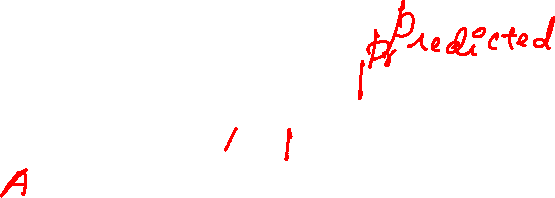 Predicted
A